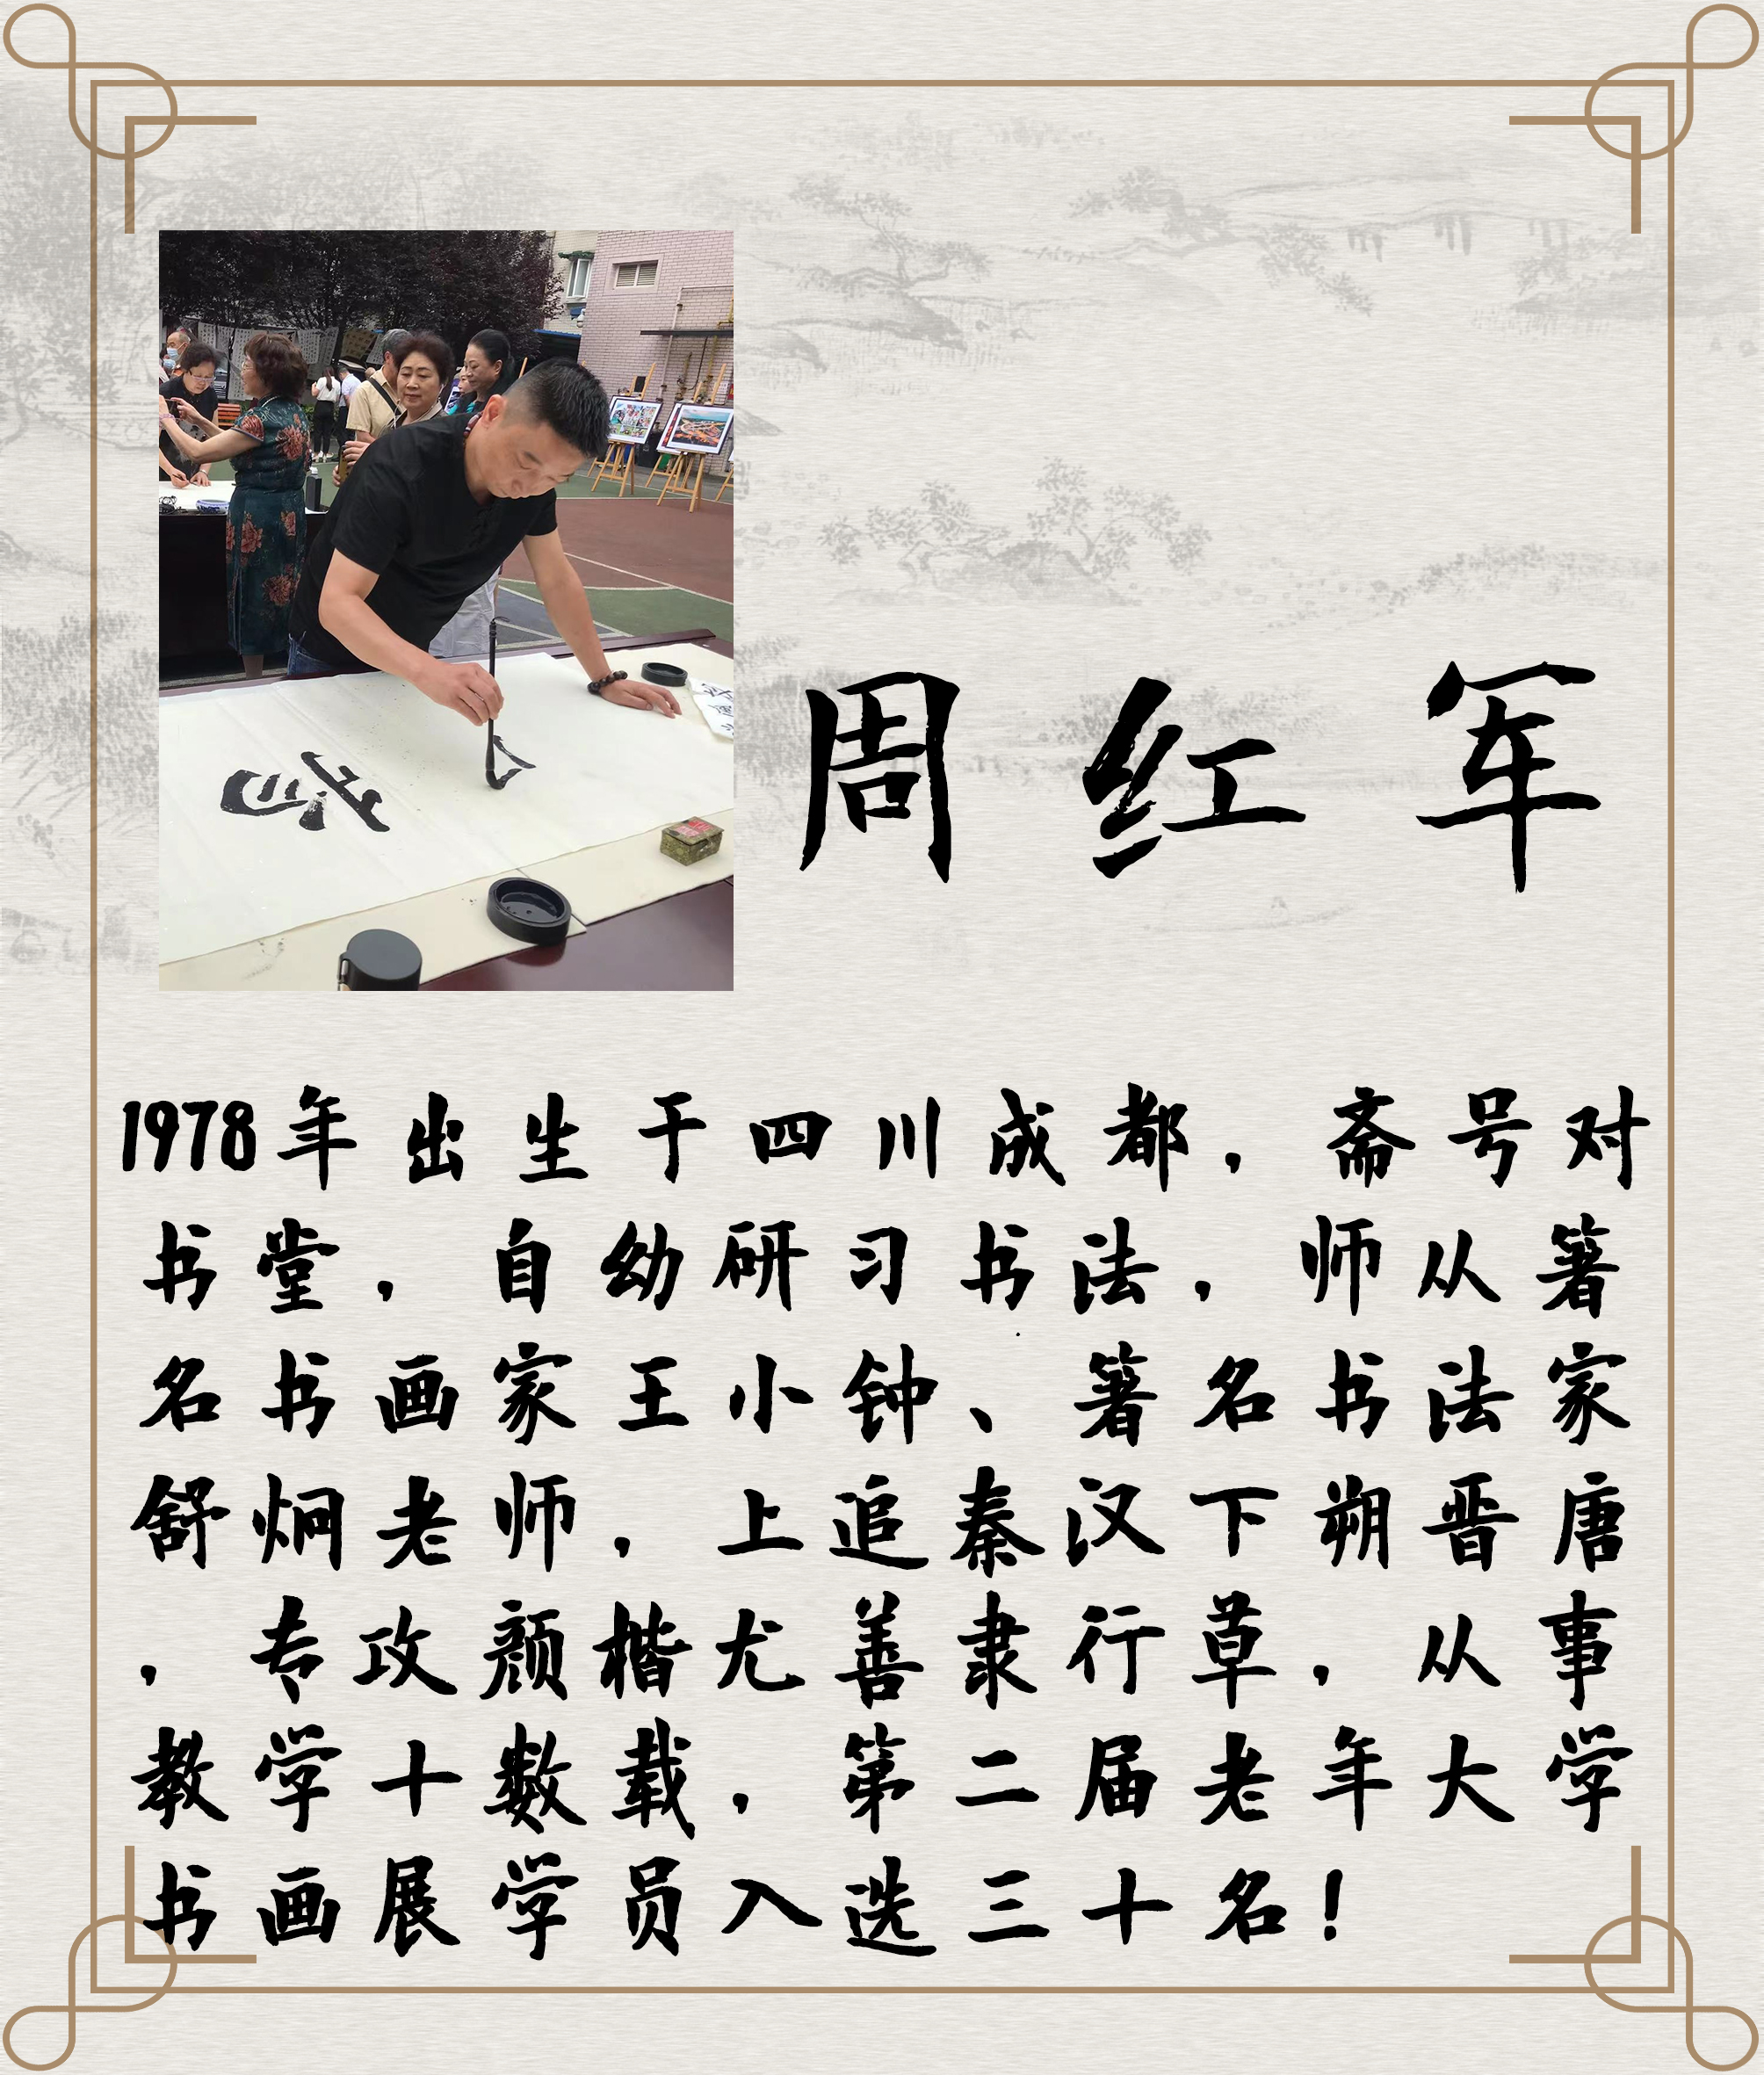 周红军
1978年出生于四川成都，斋号对
书堂，自幼研习书法，师从著
名书画家王小钟、著名书法家
舒炯老师，上追秦汉下朔晋唐
，专攻颜楷尤善隶行草，从事
教学十数载，第二届老年大学
书画展学员入选三十名！